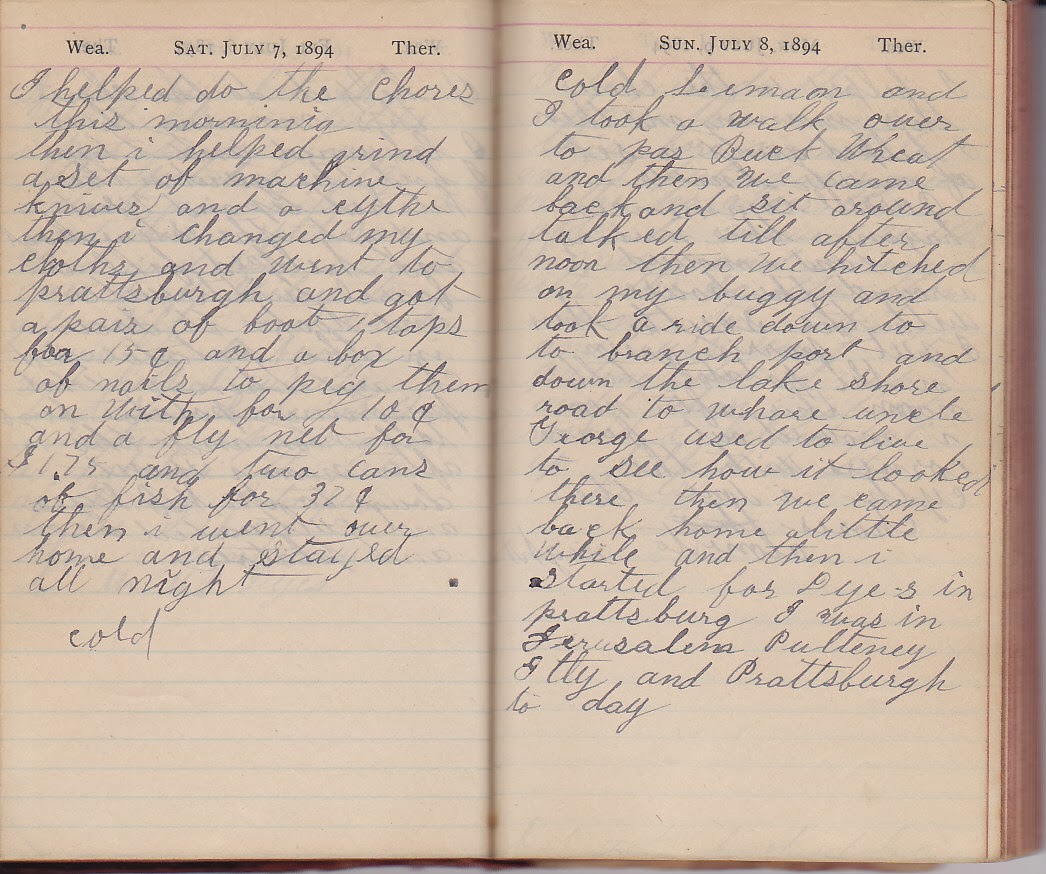 Wea. SAT. JULY 7, 1894 Ther.
I helped do the chores
this morninig
then i helped grind
a set of machine
knives and a cythe
then i changed my
cloths and went to
prattsburgh and got
a pair of boot taps
for 15 ¢ and a box
of nails to peg them
on with for 10 ¢
and a fly net for
1.75 and two cans
of fish for 32 ¢
then i went over
home and stayed
all night
cold
Wea. SUN. JULY 8, 1894 Ther.
cold and
I took a walk over
to pas Buck Wheat
and then we came
back and sit around
talked till after
noon then we hitched
on my buggy and
took a ride down to
to branch port and
down the lake shore
road to whare uncle
George used to live
to see how it looked
there then we came
back home alittle
while and then i
started for Dye-s in
prattsburg I was in
Jerusalem Pulteney
Itly and Prattsburgh
to day